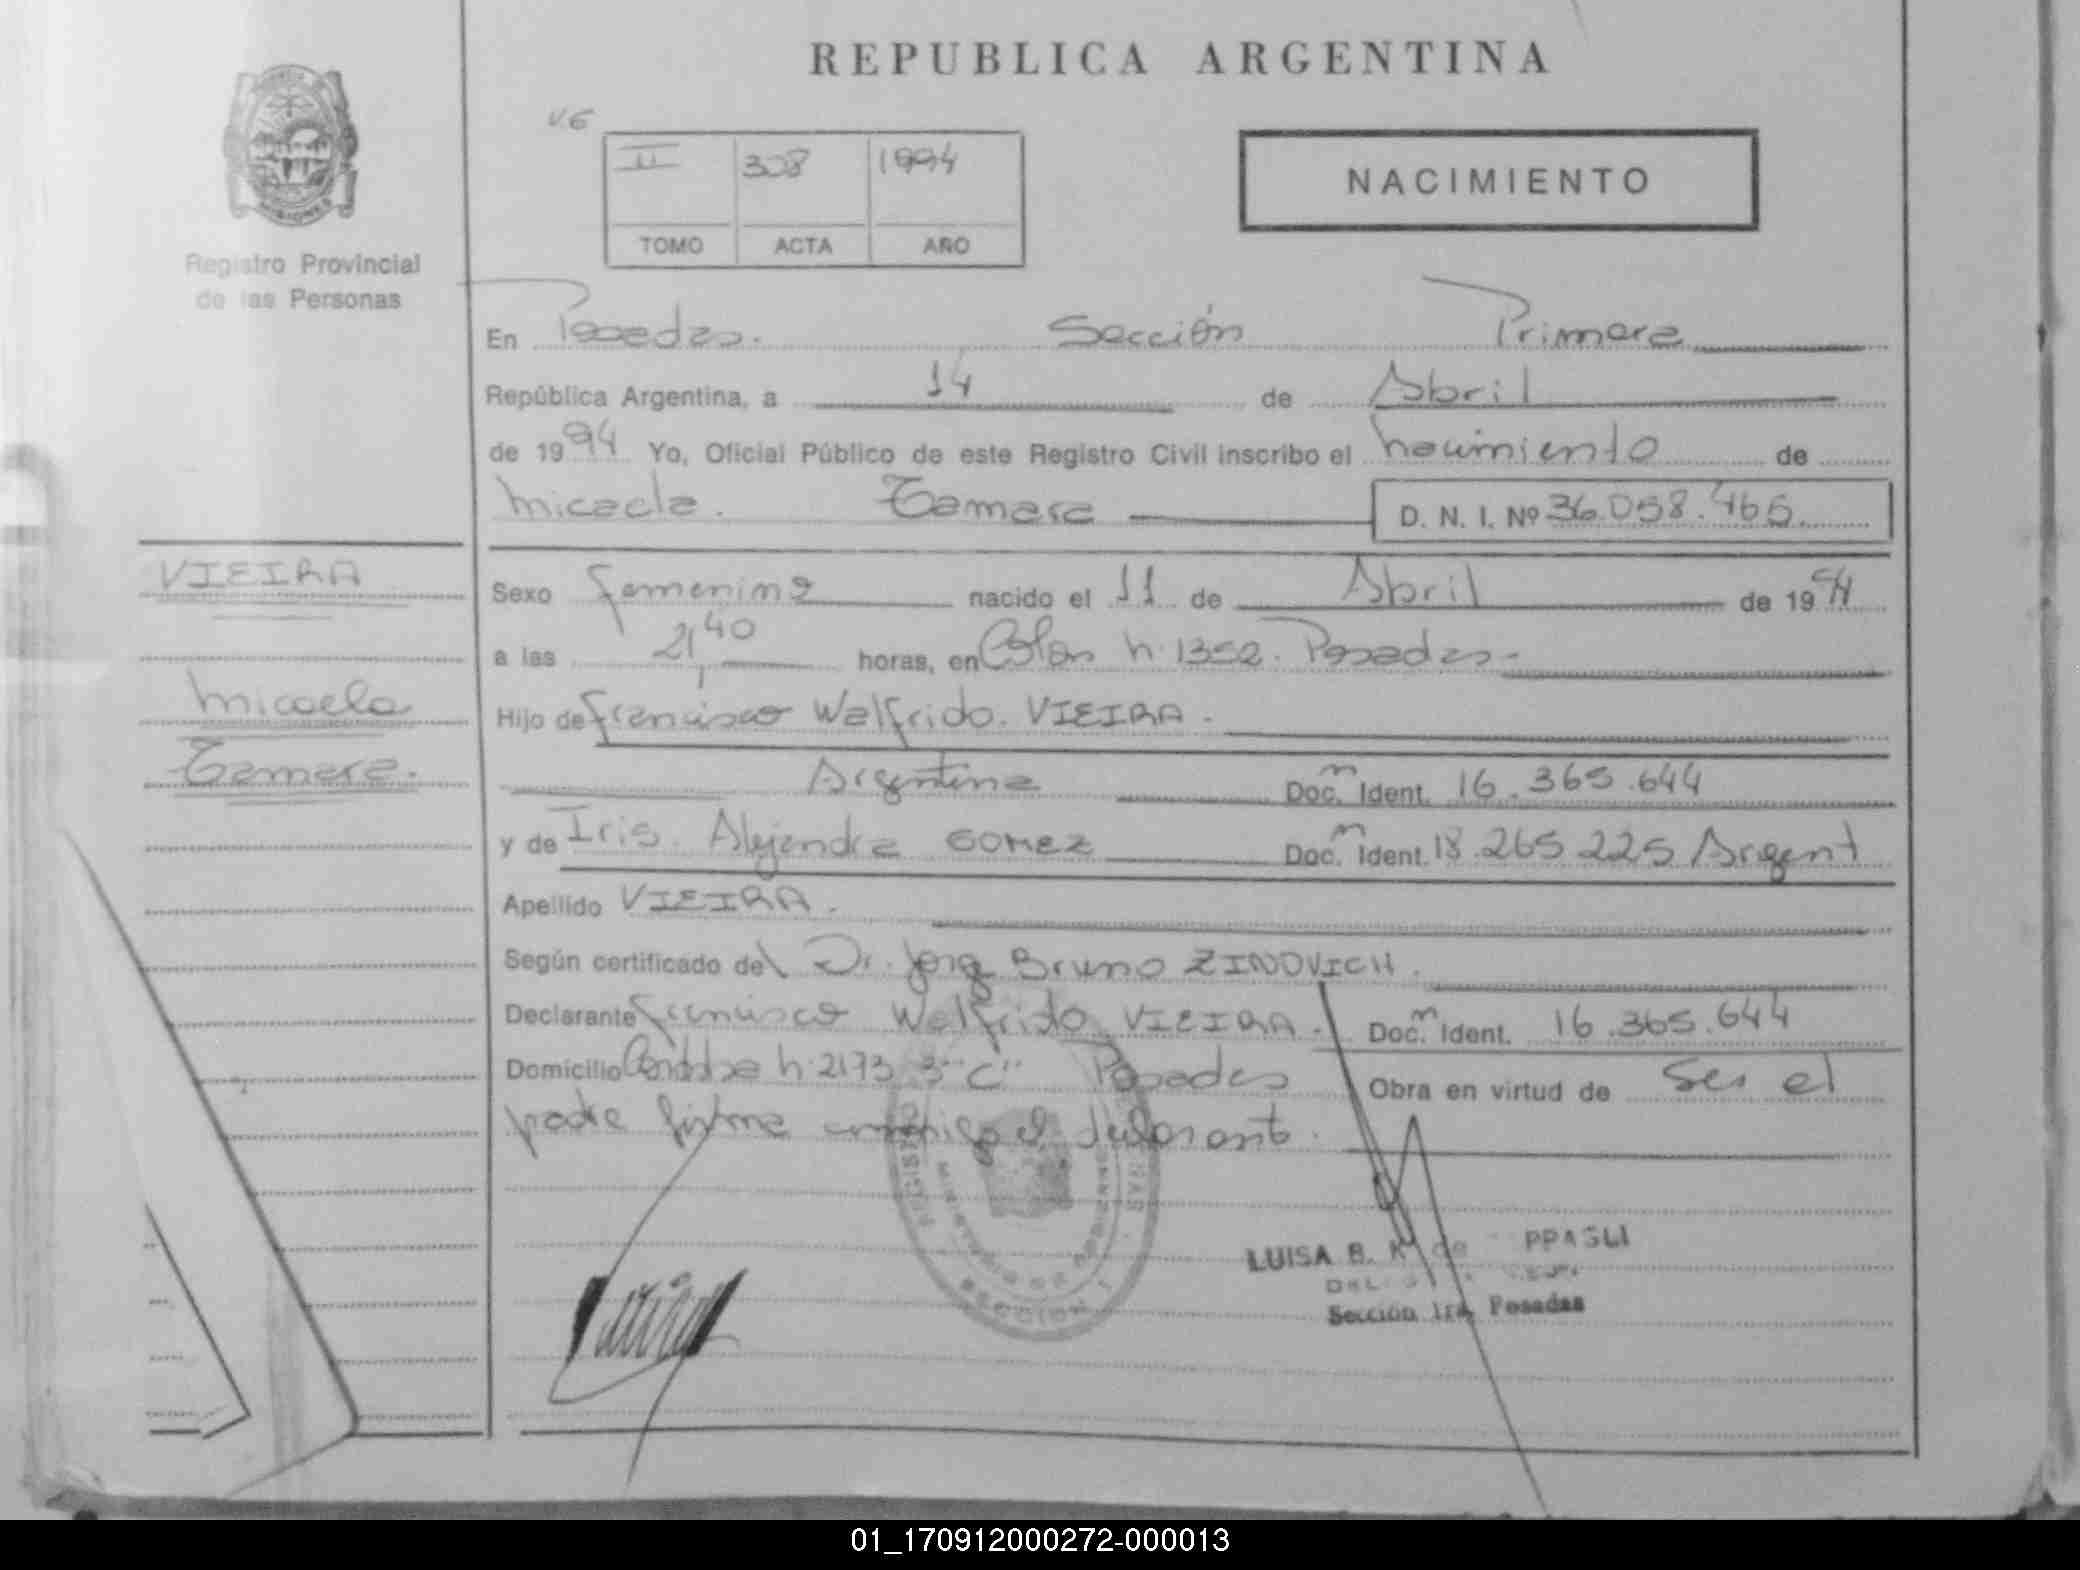 REPUBLICA ARGENTINA
MISIONES
Registro Provincial
de las Personas
II 308 1994
TOMO ACTA AÑO
NACIMIENTO
En Posadas. Sección Primera
República Argentina, a 14 de Abril
de 1994 Yo, Oficial Público de este Registro Civil inscribo el nacimiento de
Micaela. Tamara D. N. I. Nº 36.058.465.
VIEIRA
Micaela
Tamara.
Sexo femenino nacido el 11 de Abril de 1994
a las 21,40 horas, en Colon n. 1352. Posadas.
Hijo de Francisco Walfrido. VIEIRA.
Argentina Doc. Ident. 16.365.644
y de Iris. Alejandra GOMEZ Doc. Ident. 18.265.225 Argent
Apellido VIEIRA.
Según certificado del Dr. Jorge Bruno ZINOVICH.
Declarante Francisco Walfrido VIEIRA. Doc. Ident. 16.365.644
Domicilio n. 2173 3 "C" Posadas Obra en virtud de ser el
padre firma conmigo el declarante.
LUISA B. de
Sección 1ra. Posadas
SECCION 1
01_170912000272-000013